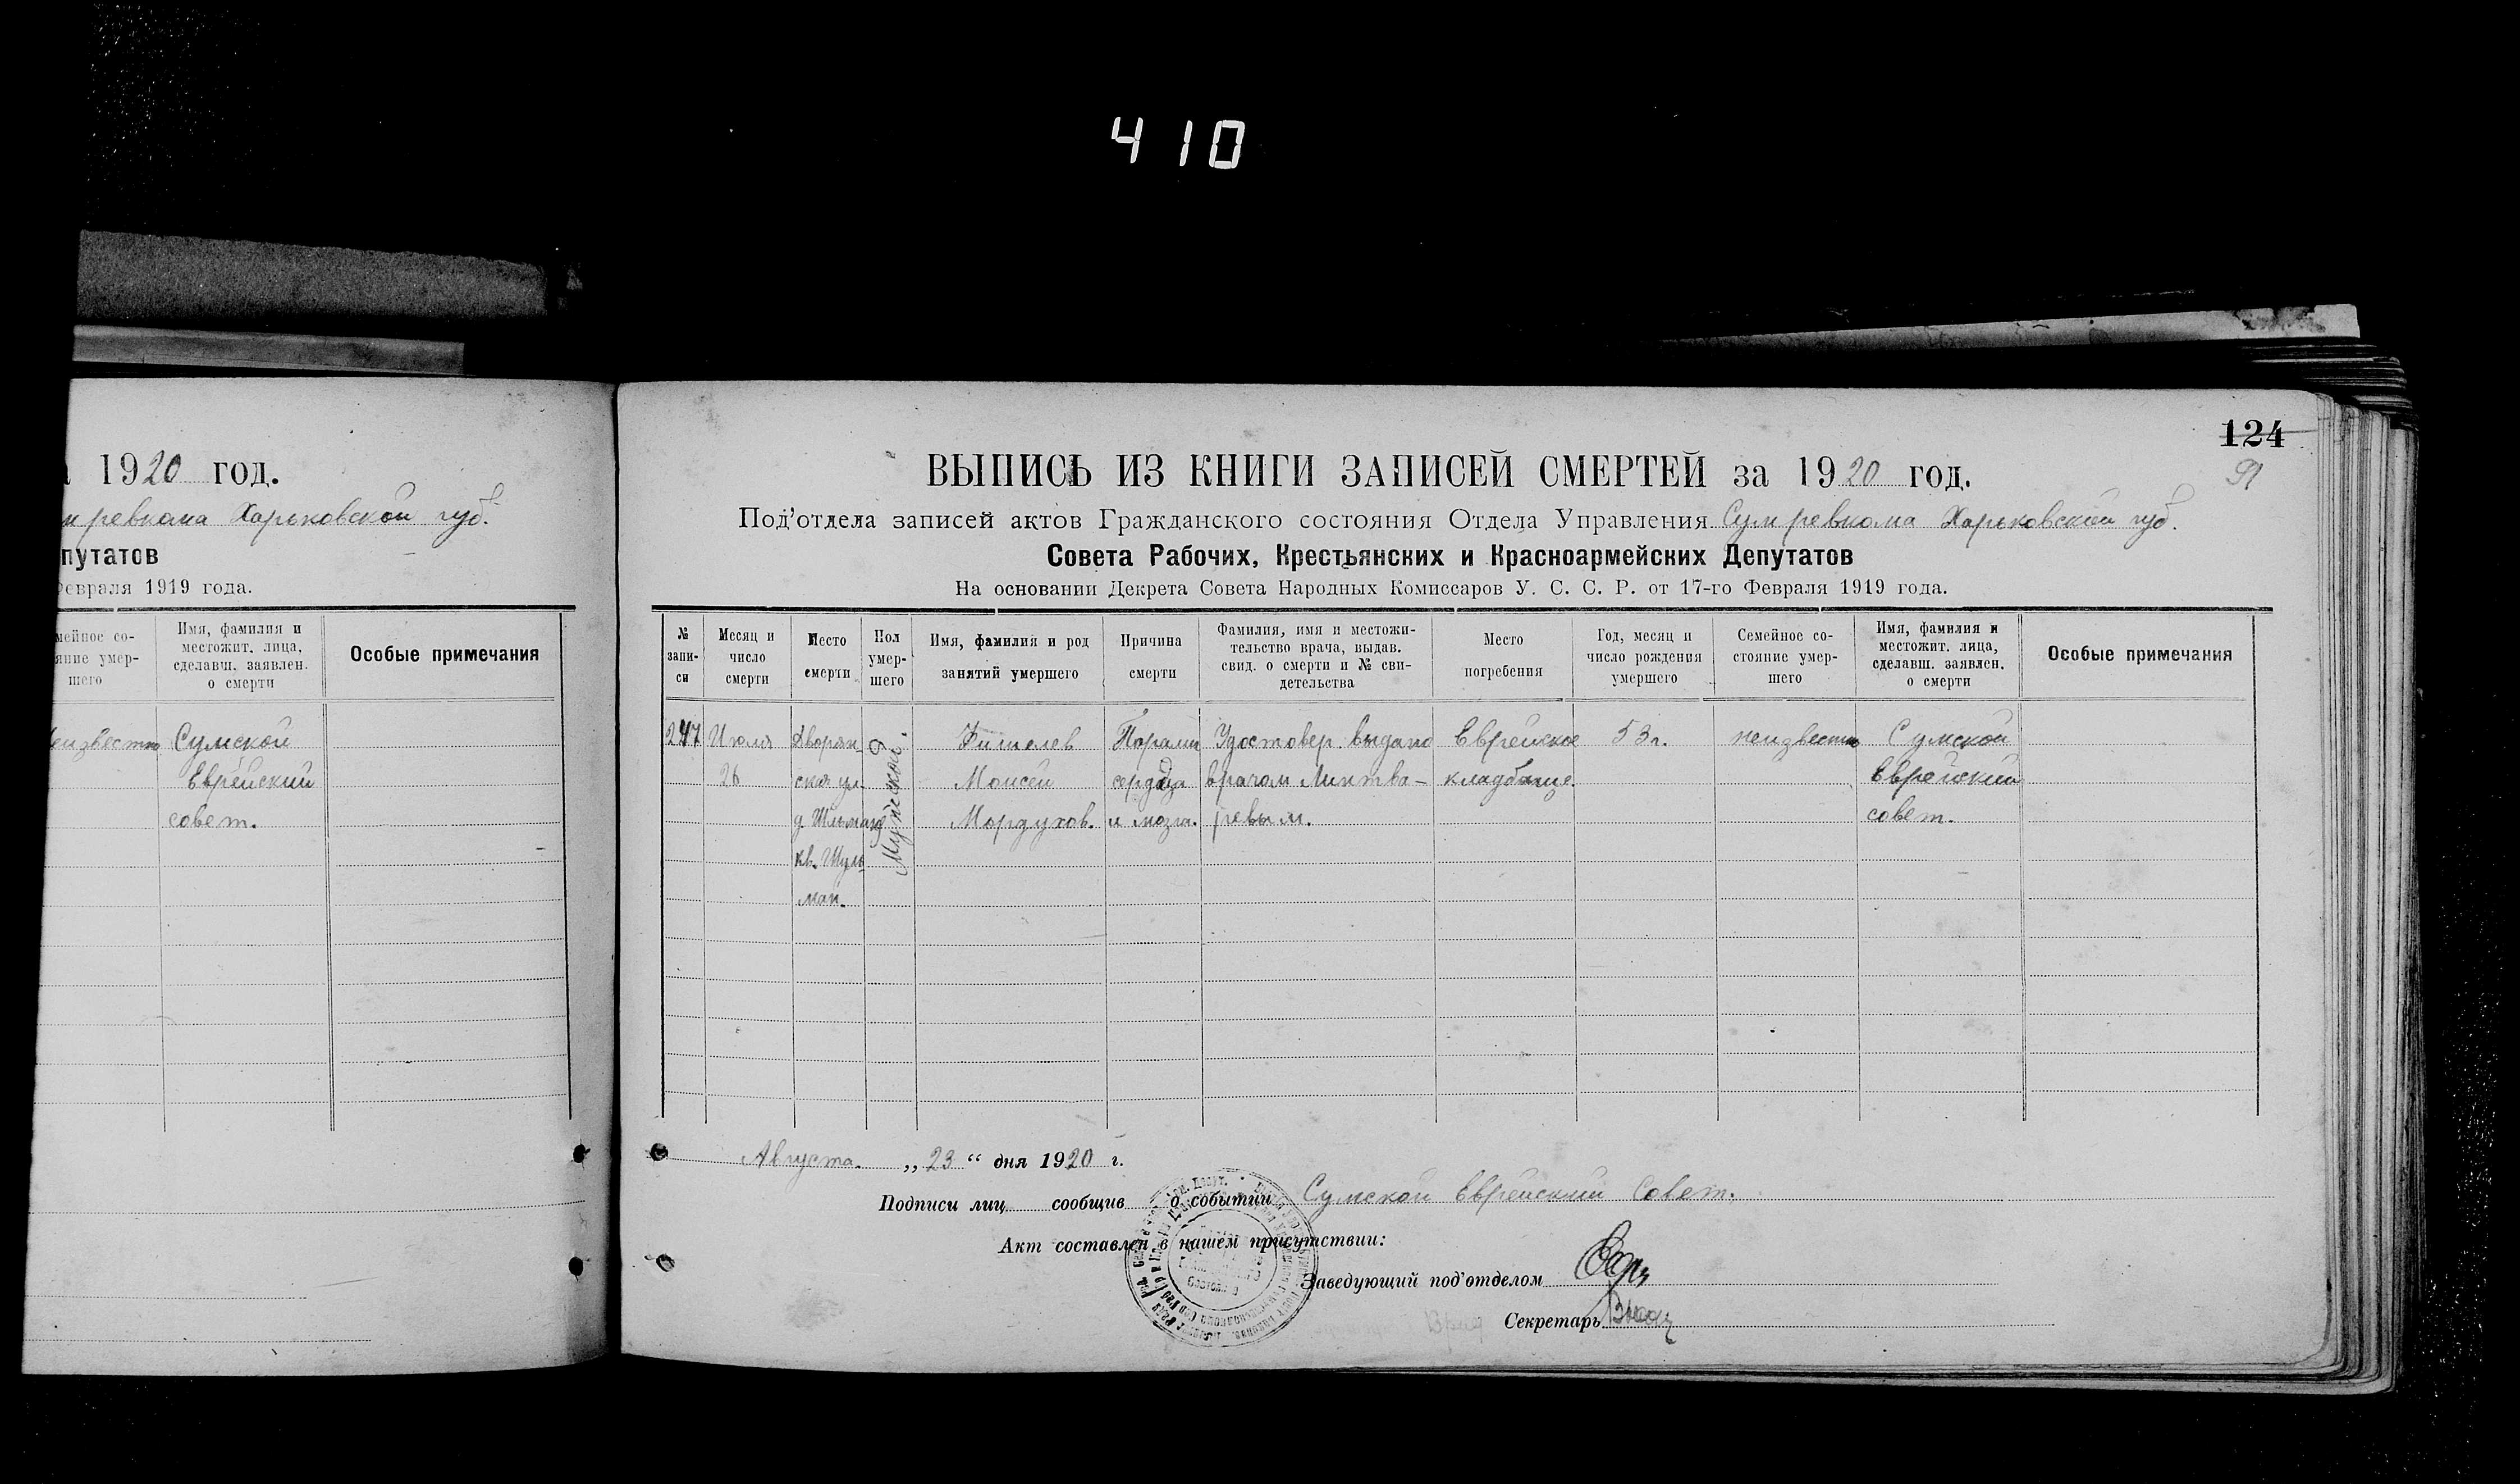 410
1920 год.
ревкома Харьковской губ.
путатов
евраля 1919 года.
мейное со-
яние умер-
шего
Имя, фамилия и
местожит. лица,
сделавш. заявлен.
о смерти
Особые примечания
Сумской
Еврейский
совет.
124
91
ВЫПИСЬ ИЗ КНИГИ ЗАПИСЕЙ СМЕРТЕЙ за 1920 год.
Под'отдела записей актов Гражданского состояния Отдела Управления Сумревкома Харьковской губ.
Совета Рабочих, Крестьянских и Красноармейских Депутатов
На основании Декрета Совета Народных Комиссаров У. С. С. Р. от 17-го Февраля 1919 года.
№
запи-
си
Месяц и
число
смерти
Место
смерти
Пол
умер-
шего
Имя, фамилия и род
занятий умершего
Причина
смерти
Фамилия, имя и местожи-
тельство врача, выдав.
свид. о смерти и № сви-
детельства
Место
погребения
Год, месяц и
число рождения
умершего
Семейное со-
стояние умер-
шего
Имя, фамилия и
местожит. лица,
сделавш. заявлен.
о смерти
Особые примечания
247
Июля
26
Дворян-
ская ул.
кв. Шуль-
ман.
Мужской.
Фишелев
Моисей
Мордухов.
Паралич
сердца
и мозга.
Удостовер. выдано
врачом Линтва-
ревым.
Еврейское
кладбище.
53 г.
неизвестно
Сумской
Еврейский
совет.
Августа „23“ дня 1920 г.
Подписи лиц сообщив о событии Сумской Еврейский Совет.
Акт составлен в нашем присутствии:
Заведующий под'отделом
Секретарь